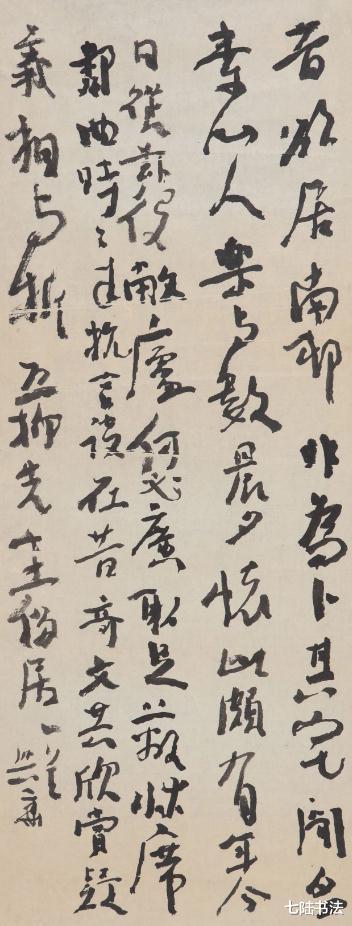 昔欲居南邨非為卜其宅聞多
素心人樂与數晨夕懷此頗有年今
日從兹役敝廬何必廣取足蔽牀席
鄰曲時々来抗言談在昔奇文共欣賞疑
義相与析 五柳先生移居
七陆书法